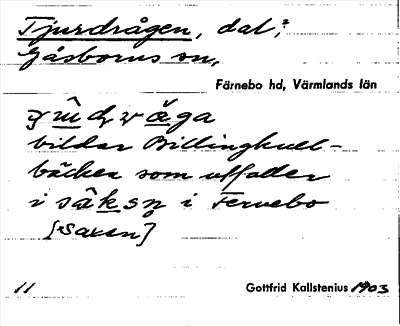 Tjurdrågen, dal,
Gåsborns sn,
Färnebo hd, Värmlands län
bildar Billingkull-
bäcken som utfaller
i i Fernebo
[Saxen]
11
Gottfrid Kallstenius 1903